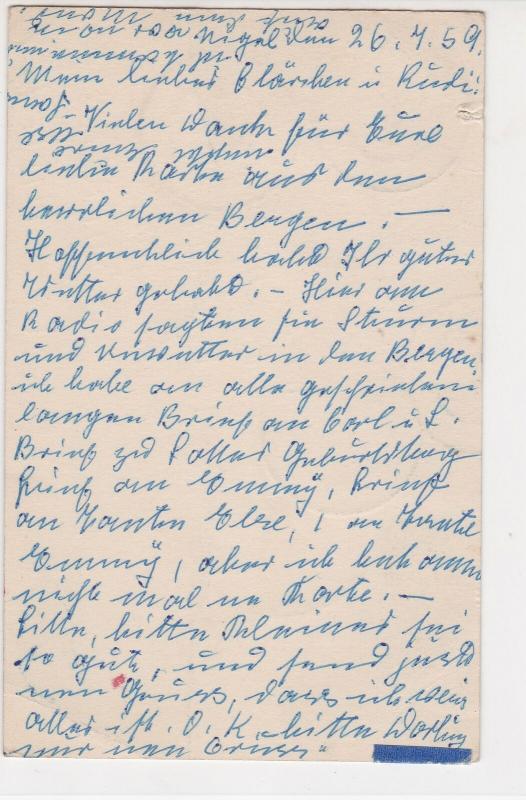 26.7.59.
Mein liebes Clärchen u Rudi!
Vielen Dank für Eure
liebe Karte aus den
herrlichen Bergen. —
Hoffentlich habt Ihr gutes
Wetter gehabt. — Hier am
Radio sagten sie Sturm
und Unwetter in den Bergen.
ich habe an alle geschrieben
langen Brief an Carl u. L.
Brief zu Lottes Geburtstag
Brief an Emmÿ, Brief
an Tanten Else, 1 an Tante
Emmÿ, aber ich bekomm
nicht mal ne Karte. —
Bitte, bitte Kleines sei
so gut, und send
nen Gruss, dass ich weis
alles ist O.K. bitte Darling
nur nen Gruss"